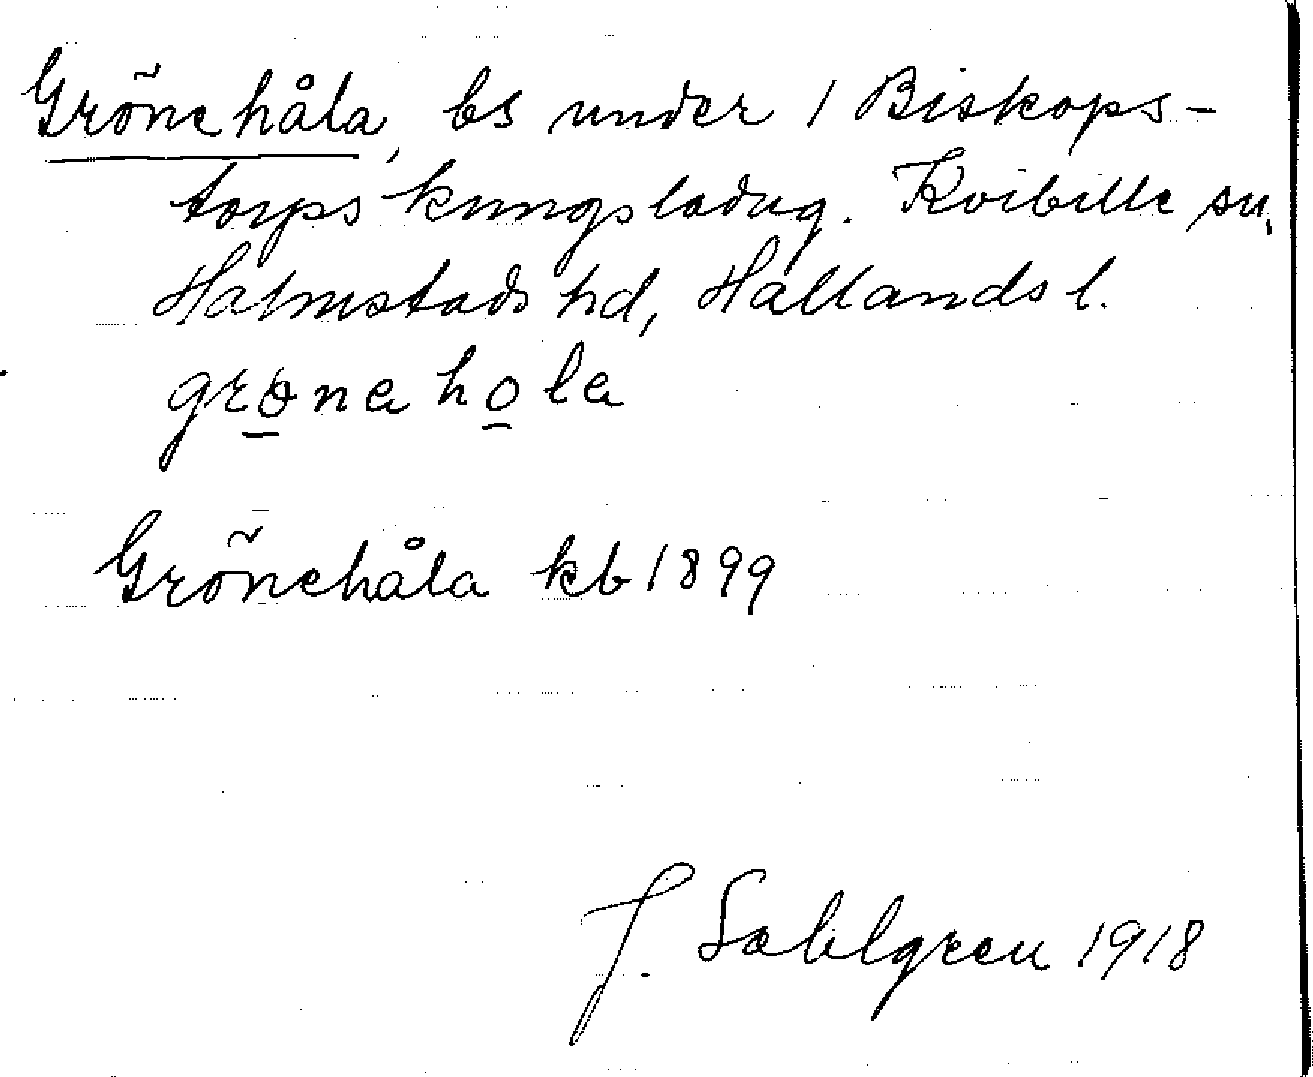 Grönehåla, bs under 1 Biskops-
torps kungsladug. Kvibille sn,
Halmstads hd, Hallands l.
grøna hola
Grönehåla kb 1899
J. Sahlgren 1918